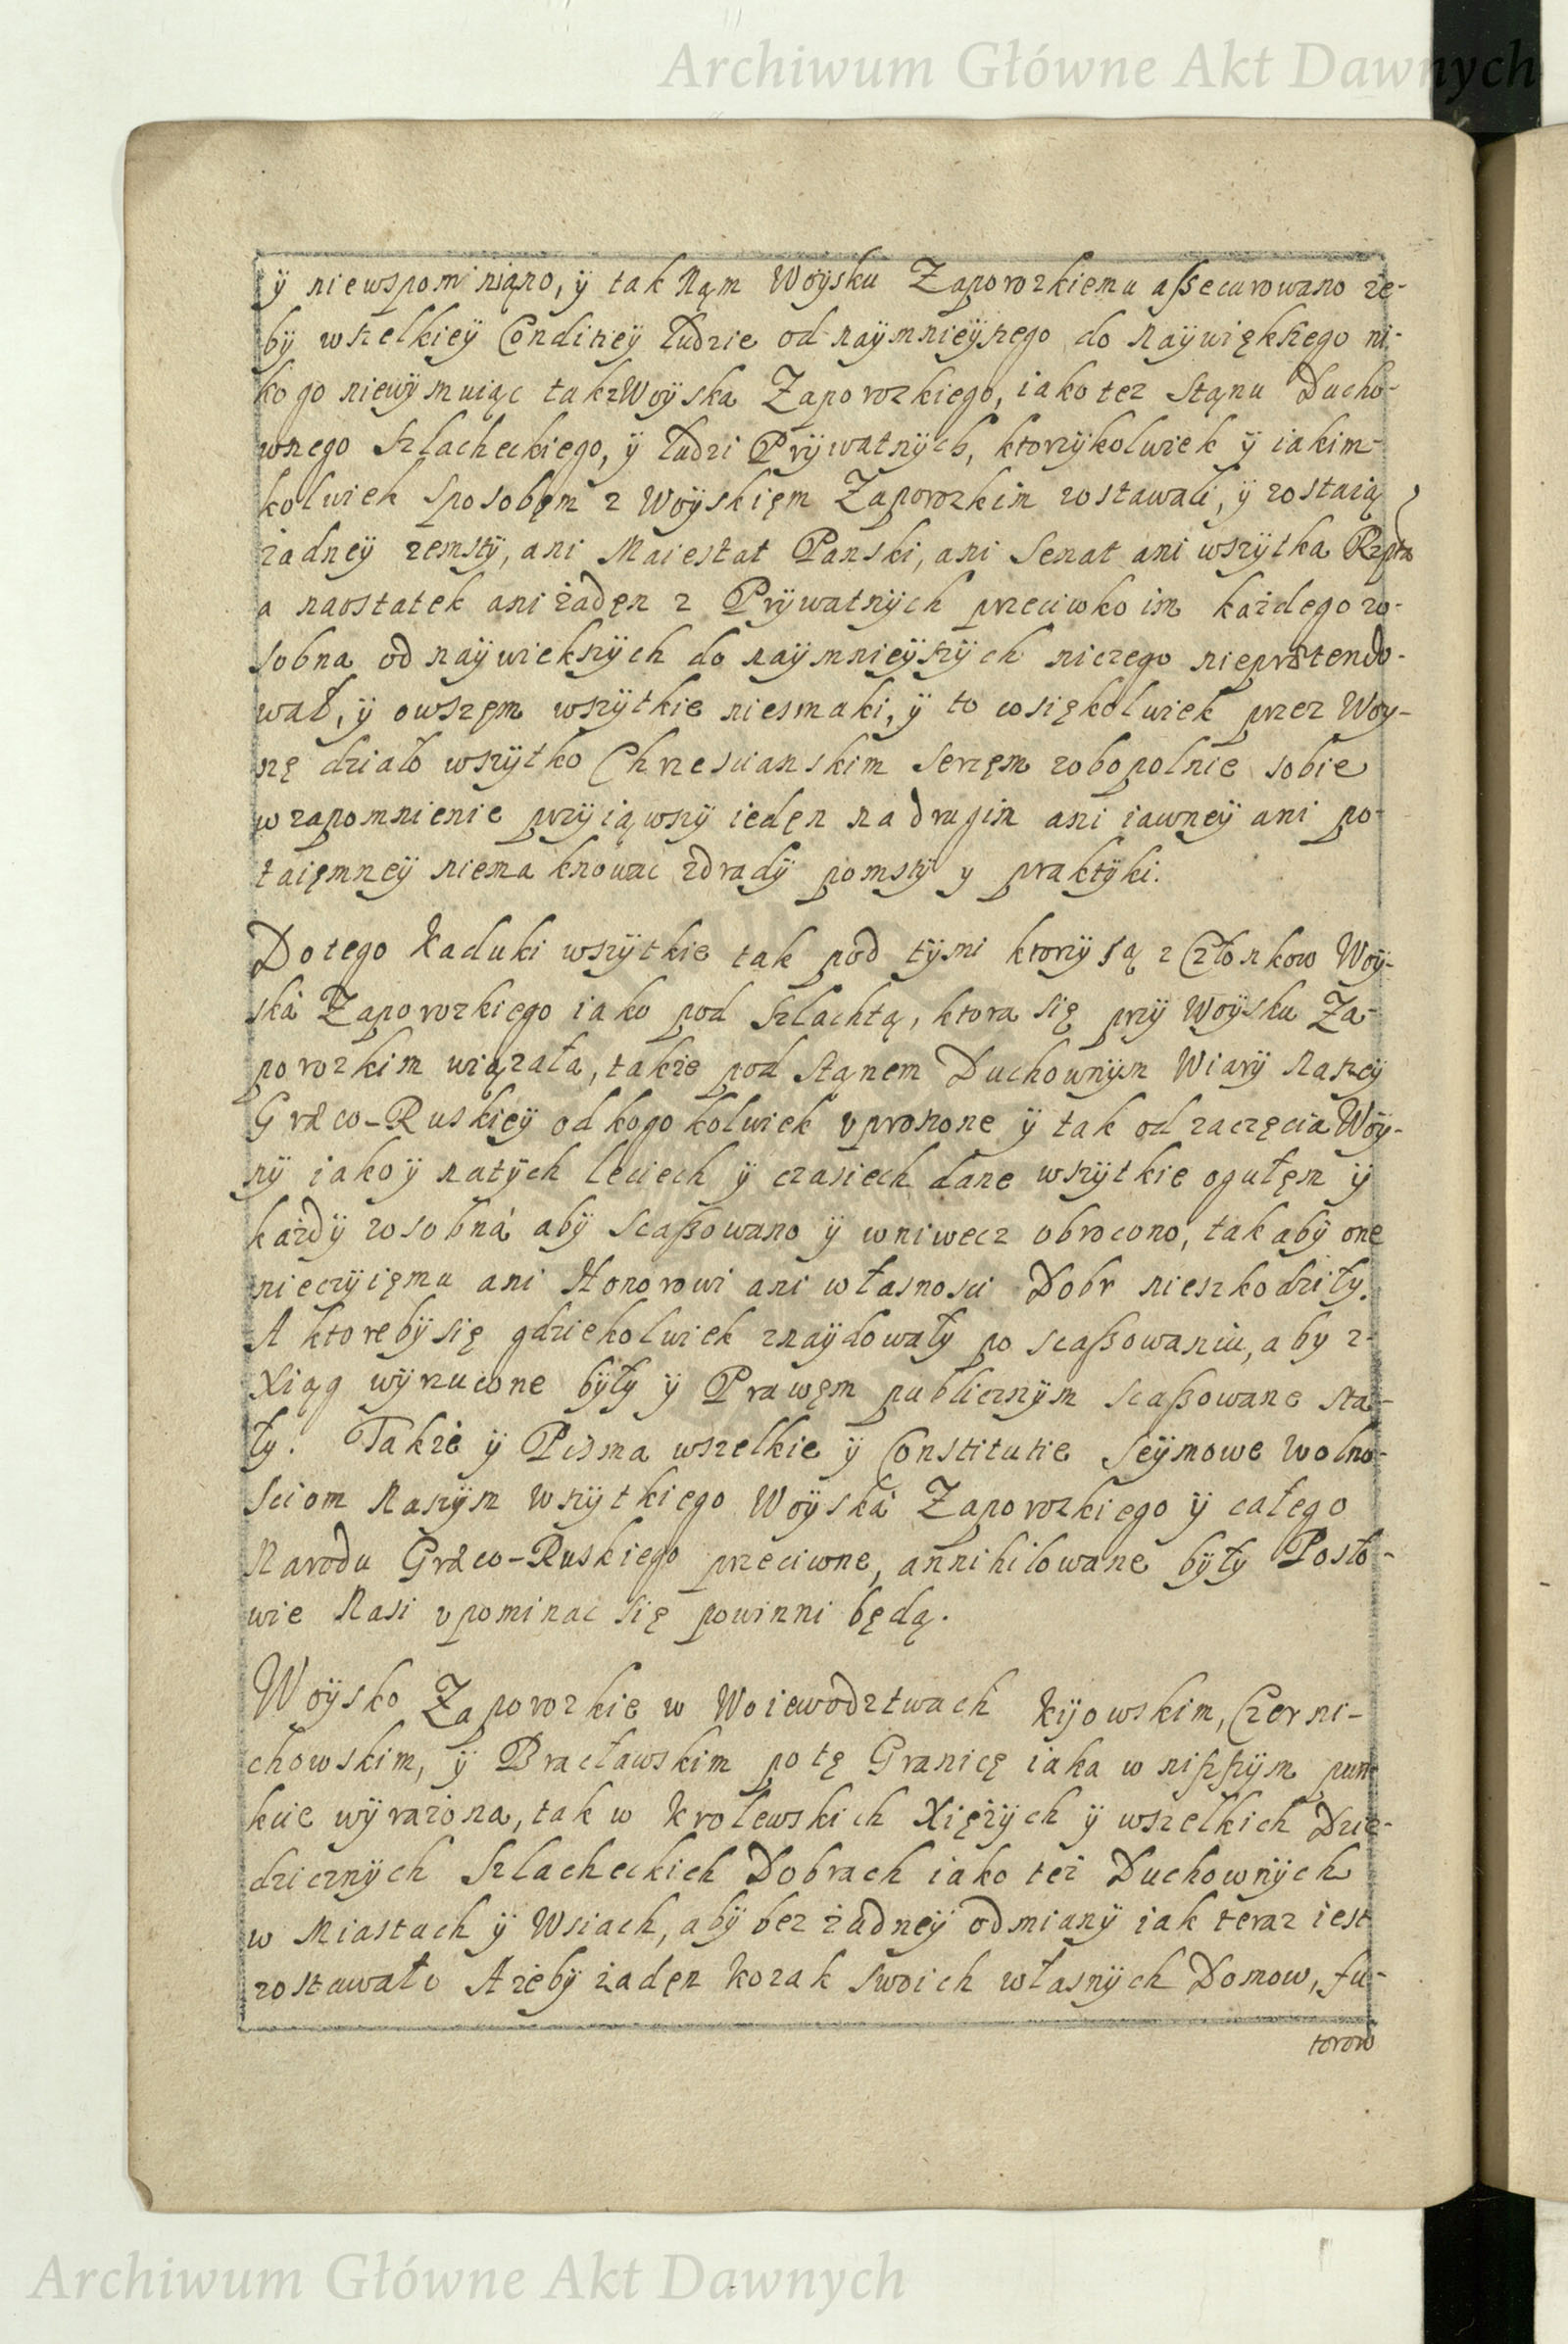 Archiwum Główne Akt Dawnych
ÿ niewspominiąno, ÿ tak Nąm Woÿsku Zaporozkiemu aßecurowano ze-
bÿ wszelkieÿ Conditieÿ Ludzie od naÿmnieÿszego do naÿwiększego ni-
kogo niewÿmuiąc takzWoÿska Zaporozkiego, iako tez Stąnu Ducho-
wnego Szlacheckiego, ÿ Ludzi Prÿwatnÿch, ktorzÿkolwiek ÿ iakim-
kolwiek sposobęm z Woÿskięm Zaporozkim zostawali, ÿ zostaią
zadneÿ zemstÿ, ani Maiestat Panski, ani Senat ani wszÿtka Rzpta
a naostatek ani żadęn z Prÿwatnÿch przeciwko im każdego zo-
sobna od naÿwiekszÿch do naÿmnieÿszÿch niczego nieprætendo-
wał, ÿ owszęm wszÿtkie niesmaki, ÿ to cosiękolwiek przez Woy-
nę działo wszÿtko Chrzescianskim sercęm zobopolnie sobie
w zapomnienie przÿiąwszÿ iedęn na drugim ani iawneÿ ani po-
taięmneÿ niema knowac zdradÿ pomstÿ y praktÿki.
Dotego Kaduki wszÿtkie tak pod tÿmi ktorzÿ są z Członkow Woÿ-
ska Zaporozkiego iako pod Szlachtą, ktora się przÿ Woÿsku Za-
porozkim wiązała, takze pod Stąnem Duchownÿm Wiarÿ Naszeÿ
Græco-Ruskieÿ od kogokolwiek vproszone ÿ tak od zaczęcia Woÿ-
nÿ iako ÿ natÿch leciech ÿ czasiech dane wszÿtkie ogułęm ÿ
każdÿ zosobna abÿ scaßowano ÿ wniwecz obrocono, tak abÿ one
nieczÿięmu ani Honorowi ani własnosci Dobr nieszkodziłÿ.
A ktorebÿ się gdziekolwiek znaÿdowałÿ po scaßowaniu, aby z-
Xiąg wÿrzucone bÿłÿ ÿ Prawęm publicznÿm scaßowane sta-
łÿ. Takze ÿ Pisma wszelkie ÿ Constitutie Seÿmowe wolno-
sciom Naszÿm wszÿtkiego Woÿska Zaporozkiego ÿ całego
Narodu Græco-Ruskiego przeciwne, annihilowane bÿłÿ Posło-
wie Nasi vpominac się powinni będą.
Woÿsko Zaporozkie w Woiewodztwach Kijowskim, Czerni-
chowskim, ÿ Bracławskim potę Granicę iaka w niższÿm pun-
kcie wÿrażona, tak w Krolewskich Xiężÿch ÿ wszelkich Dzie-
dzicznÿch Szlacheckich Dobrach iako też Duchownÿch
w Miastach ÿ Wsiach, abÿ bez żadneÿ odmianÿ iak teraz iest
zostawało Ażebÿ żadęn Kozak swoich własnÿch Domow, fu-
torow
Archiwum Główne Akt Dawnych